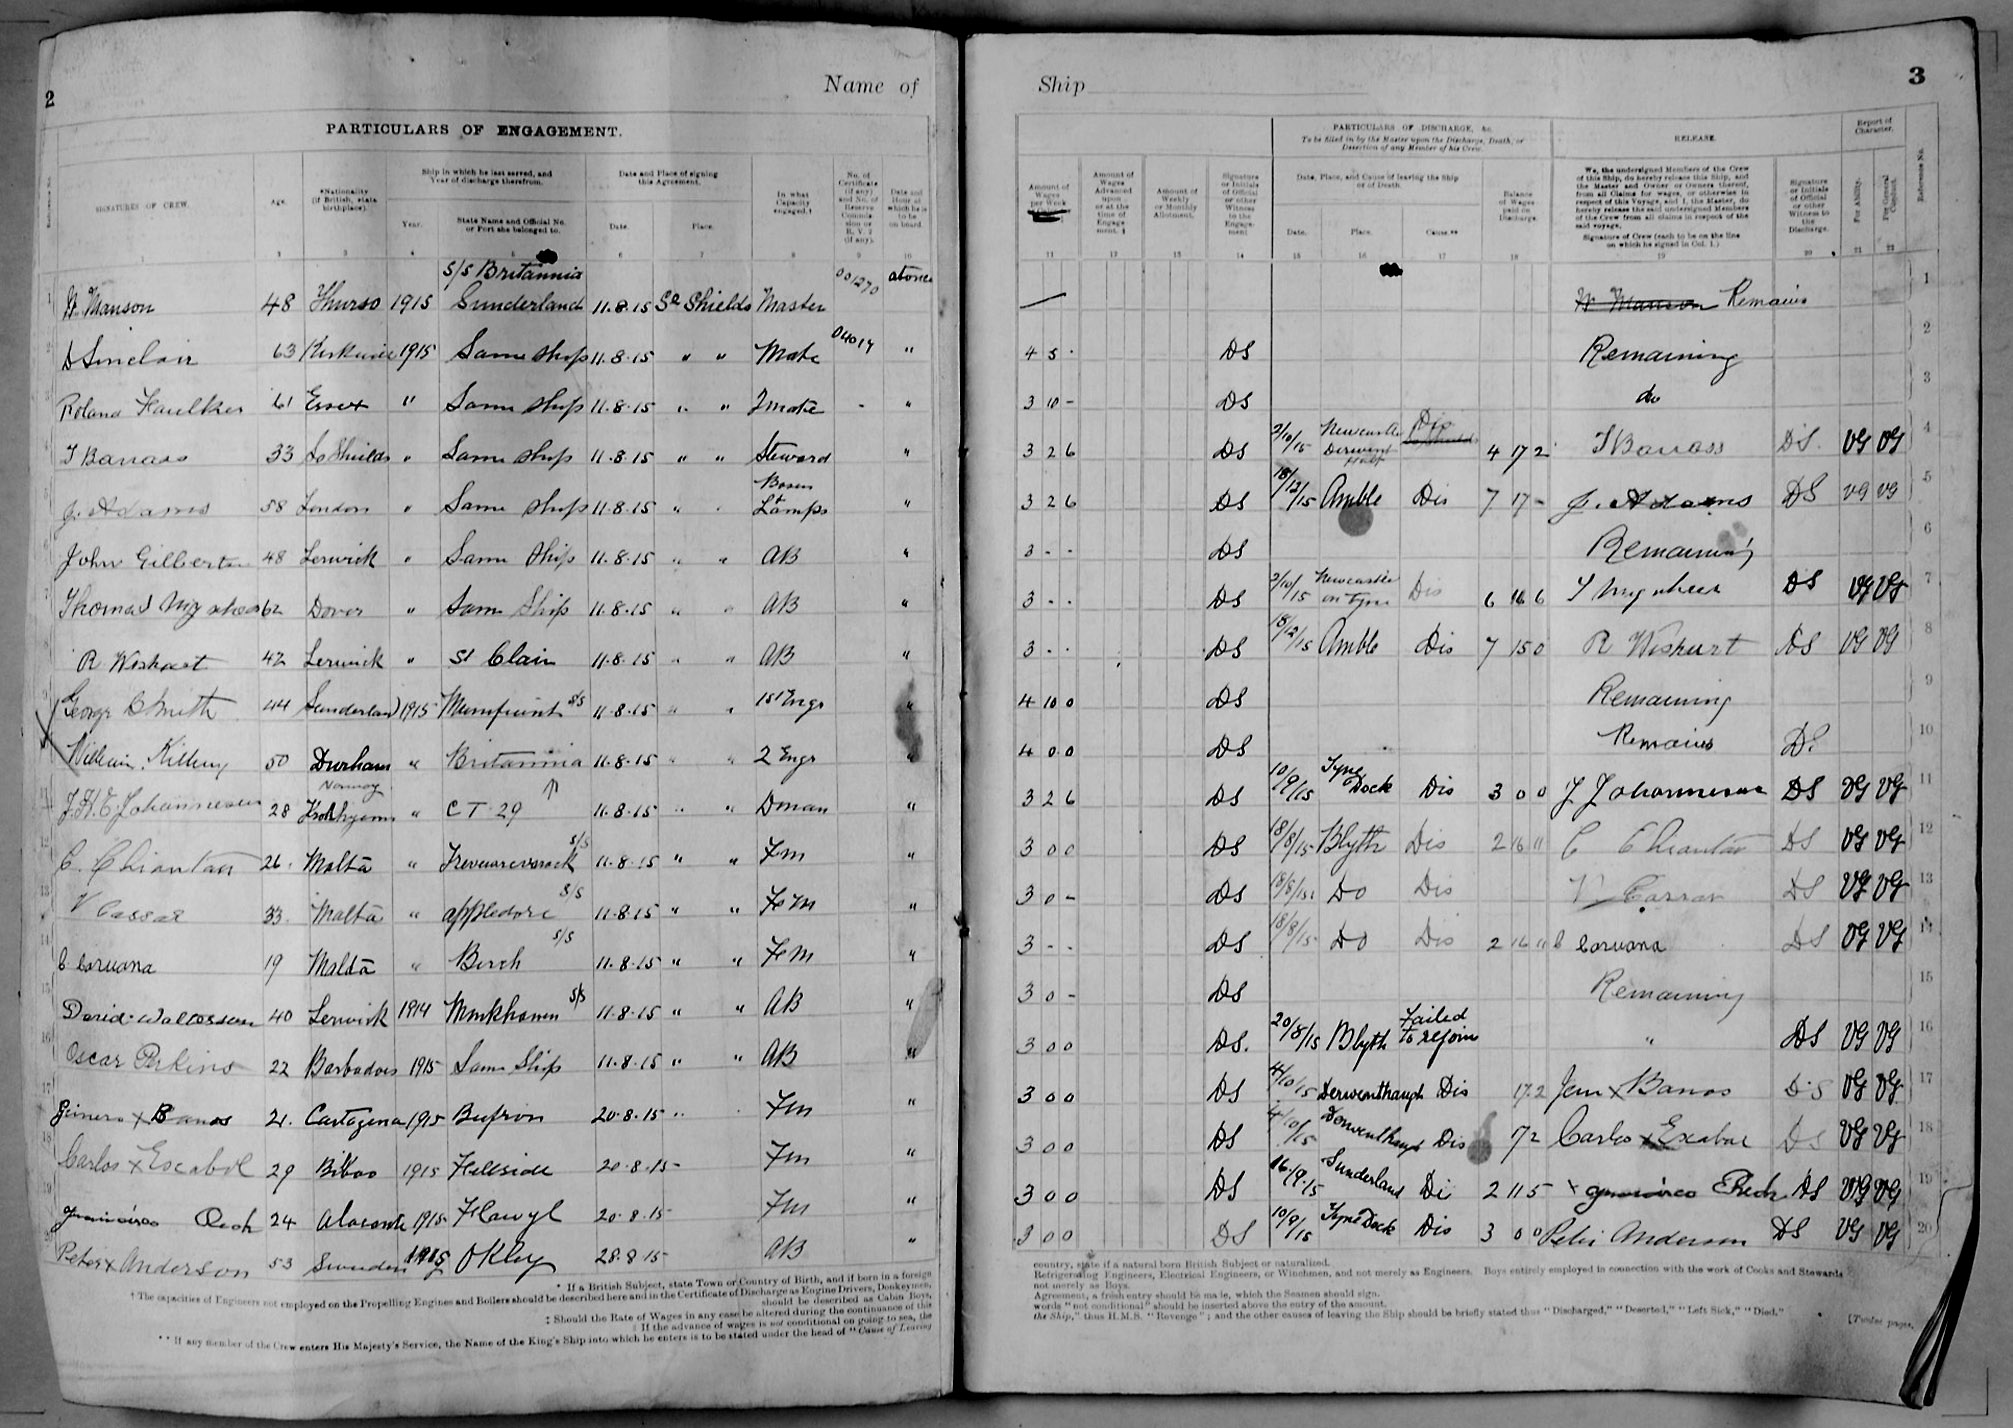 2
Name of
PARTICULARS OF ENGAGEMENT.
Reference No.
SIGNATURES OF CREW.
Age.
*Nationality (If British, state birthplace).
Ship in which he last served, and Year of discharge therefrom.
Year.
State Name and Official No. or Port she belonged to.
Date and Place of signing this Agreement.
Date.
Place.
In what Capacity engaged.†
No. of Certificate (if any) and No. of Reserve Commission or R. V. 2 (if any).
Date and Hour at which he is to be on board.
1 2 3 4 5 6 7 8 9 10
1 W. Manson 48 Thurso 1915 S/S Britannia Sunderland 11.8.15 So Shields Master 001270 atonce
2 D Sinclair 63 Kirkwall 1915 Same ship 11.8.15 " " Mate 04017 "
3 Roland Faulkner 61 Essex " Same ship 11.8.15 " " 2 mate - "
4 T Barrass 33 So Shields " Same ship 11.8.15 " " Steward "
5 J. Adams 58 London " Same ship 11.8.15 " " Bosun & Lamps "
6 John Gilbertson 48 Lerwick " Same Ship 11.8.15 " " AB "
7 Thomas 62 Dover " Same Ship 11.8.15 " " AB "
8 R Wishart 42 Lerwick " St Clair 11.8.15 " " AB "
9 George Smith 44 Sunderland 1915 S/S 11.8.15 " " 1st Engr "
10 William 50 Durham " Britannia 11.8.15 " " 2 Engr "
11 Johannesen 28 Norway " CT 29 11.8.15 " " Dman "
12 C. Chiantar 26 Malta " S/S 11.8.15 " " Fm "
13 V Cassar 33 Malta " appledore S/S 11.8.15 " " F&M "
14 C Caruana 19 Malta " Birch S/S 11.8.15 " " F&M "
15 David Walterson 40 Lerwick 1914 Monkhaven S/S 11.8.15 " " AB "
16 Oscar Perkins 22 Barbados 1915 Same Ship 11.8.15 " " AB "
17 Ginero x Banos 21 Cartagena 1915 20.8.15 " Fm "
18 Carlos x Escabol 29 Bilbao 1915 Fellside 20.8.15 Fm "
19 24 Alacante 1915 20.8.15 Fm "
20 Peter x Anderson 53 Sweden 1915 Okley 28.8.15 AB "
* If a British Subject, state Town or Country of Birth, and if born in a foreign
† The capacities of Engineers not employed on the Propelling Engines and Boilers should be described here and in the Certificate of Discharge as Engine Drivers, Donkeymen,
should be described as Cabin Boys,
‡ Should the Rate of Wages in any case be altered during the continuance of this
§ If the advance of wages is not conditional on going to sea, the
** If any member of the Crew enters His Majesty's Service, the Name of the King's Ship into which he enters is to be stated under the head of "Cause of Leaving
Ship
3
Amount of Wages per Week
Amount of Wages Advanced upon or at the time of Engagement.‡
Amount of Weekly or Monthly Allotment.
Signature or Initials of Official or other Witness to the Engagement
PARTICULARS OF DISCHARGE, &c.
To be filled in by the Master upon the Discharge, Death, or Desertion of any Member of his Crew.
Date, Place, and Cause of leaving the Ship or of Death.
Date.
Place.
Cause.**
Balance of Wages paid on Discharge.
RELEASE.
We, the undersigned Members of the Crew of this Ship, do hereby release this Ship, and the Master and Owner or Owners thereof, from all Claims for wages, or otherwise in respect of this Voyage, and I, the Master, do hereby release the said undersigned Members of the Crew from all claims in respect of the said voyage.
Signature of Crew (each to be on the line on which he signed in Col. 1.)
Signature or Initials of Official or other Witness to the Discharge.
Report of Character.
For Ability.
For General Conduct.
Reference No.
11 12 13 14 15 16 17 18 19 20 21 22
W Manson Remains 1
4 5 - DS Remaining 2
3 10 - DS do 3
3 2 6 DS 2/10/15 Newcastle Dis 4 17 2 T Barrass DS. VG VG 4
3 2 6 DS 18/12/15 Amble Dis 7 17 - J. Adams DS VG VG 5
3 - - DS Remaining 6
3 - - DS 2/10/15 Newcastle on Tyne Dis 6 16 6 DS VG VG 7
3 - - DS 18/12/15 Amble Dis 7 15 0 R Wishart DS VG VG 8
4 10 0 DS Remaining 9
4 0 0 DS Remains DS 10
3 2 6 DS 10/9/15 Tyne Dock Dis 3 0 0 J Johannesen DS VG VG 11
3 0 0 DS 18/8/15 Blyth Dis 2 16 " C Chiantar DS VG VG 12
3 0 - DS 18/8/15 Do Dis V Cassar DS VG VG 13
3 - - DS 18/8/15 Do Dis 2 16 " C Caruana DS VG VG 14
3 0 - DS Remaining 15
3 0 0 DS. 20/8/15 Blyth Failed to rejoin " DS VG VG 16
3 0 0 DS 4/10/15 Derwenthaugh Dis 17.2 x Banos DS VG VG 17
3 0 0 DS 4/10/15 Derwenthaugh Dis 17 2 Carlos x Escabol DS VG VG 18
3 0 0 DS 16/9.15 Sunderland Di 2 11 5 x DS VG VG 19
3 0 0 DS 10/9/15 Tyne Dock Dis 3 0 0 Peter Anderson DS VG VG 20
country, state if a natural born British Subject or naturalized.
Refrigerating Engineers, Electrical Engineers, or Winchmen, and not merely as Engineers. Boys entirely employed in connection with the work of Cooks and Stewards
not merely as Boys.
Agreement, a fresh entry should be made, which the Seamen should sign.
words "not conditional" should be inserted above the entry of the amount.
the Ship," thus H.M.S. "Revenge"; and the other causes of leaving the Ship should be briefly stated thus "Discharged," "Deserted," "Left Sick," "Died."
[Twelve pages.